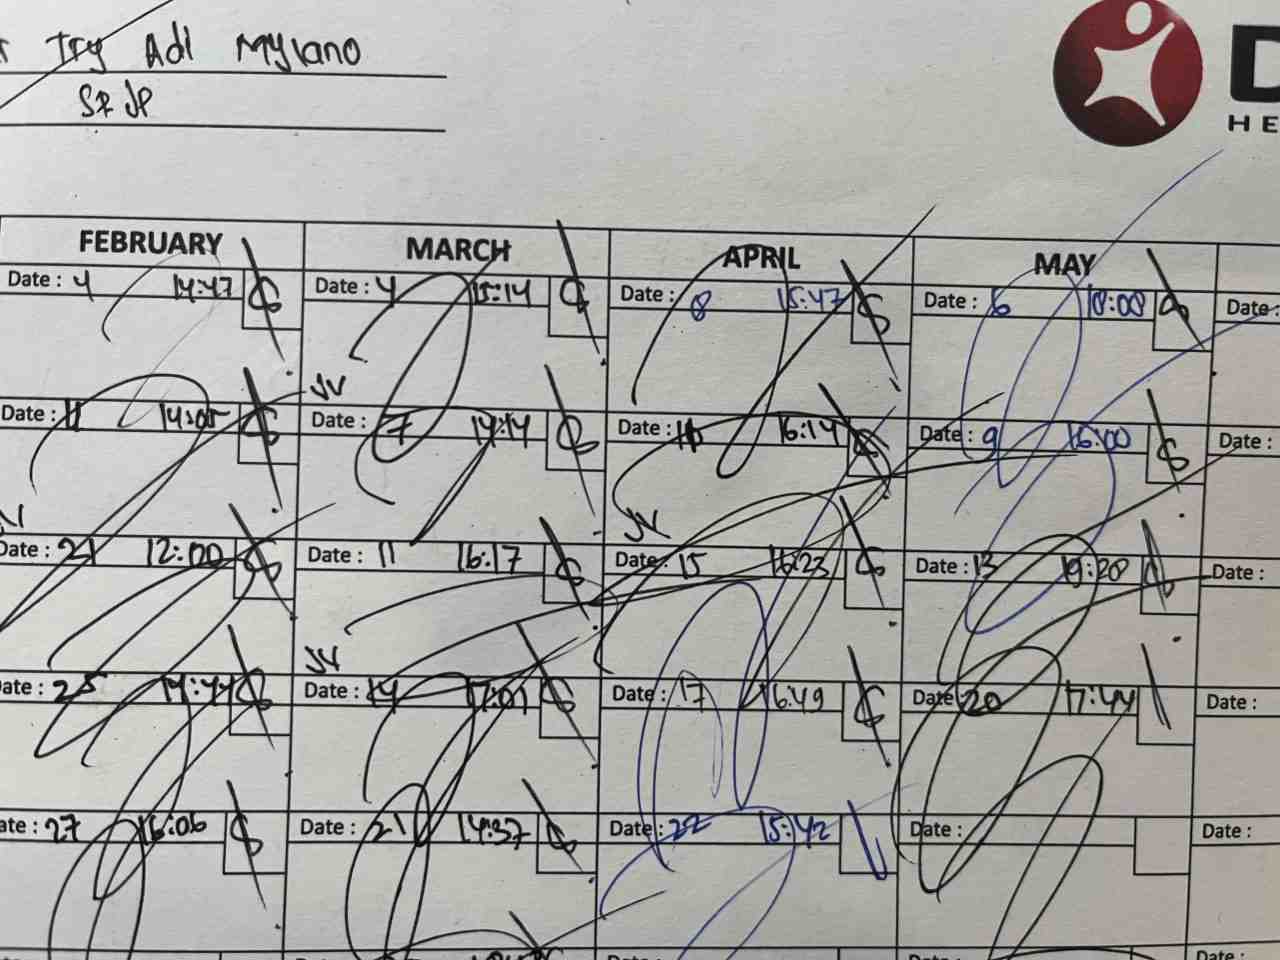 Try Adi Mylano
SR JP
D
HE
FEBRUARY MARCH APRIL MAY
Date : 4 14:47 Date : 4 15:14 Date : 8 15:47 Date : 6 18:08 Date :
JV
Date : 11 14:05 Date : 7 14:14 Date : 16:14 Date : 9 16:00 Date :
JV
Date : 21 12:00 Date : 11 16:17 Date : 15 16:23 Date : 13 19:28 Date :
JV
ate : 25 14:44 Date : 14 17:01 Date : 17 16:49 Date : 20 17:44 Date :
ate : 27 16:06 Date : 21 14:37 Date : 22 15:42 Date : Date :
Date :